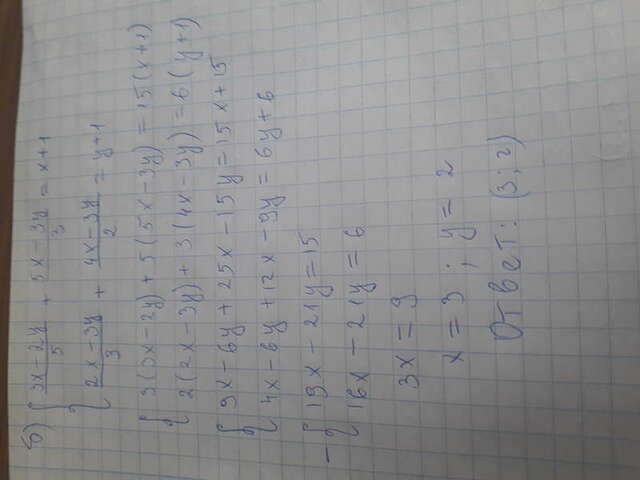 б) { (3x − 2y)/5 + (5x − 3y)/3 = x + 1
(2x − 3y)/3 + (4x − 3y)/2 = y + 1
{ 3(3x − 2y) + 5(5x − 3y) = 15(x + 1)
2(2x − 3y) + 3(4x − 3y) = 6(y + 1)
{ 9x − 6y + 25x − 15y = 15x + 15
4x − 6y + 12x − 9y = 6y + 6
− { 19x − 21y = 15
16x − 21y = 6
3x = 9
x = 3 ; y = 2
Ответ: (3; 2)